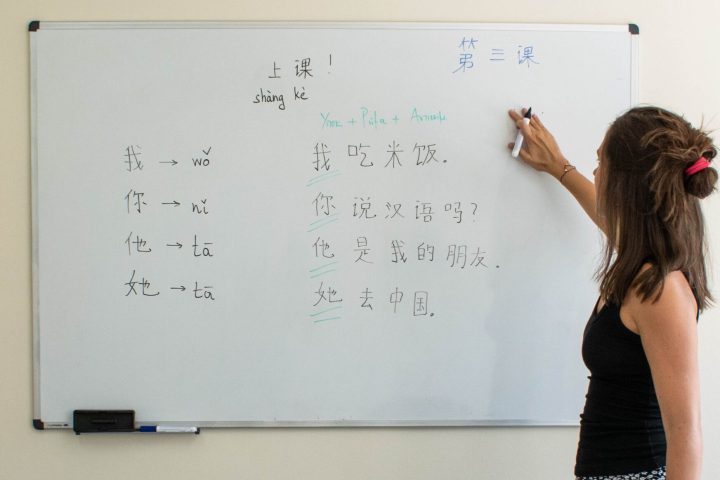 第三课
上课！
shàng kè
我 → wǒ
你 → nǐ
他 → tā
她 → tā
我吃米饭.
你说汉语吗?
他是我的朋友.
她去中国.